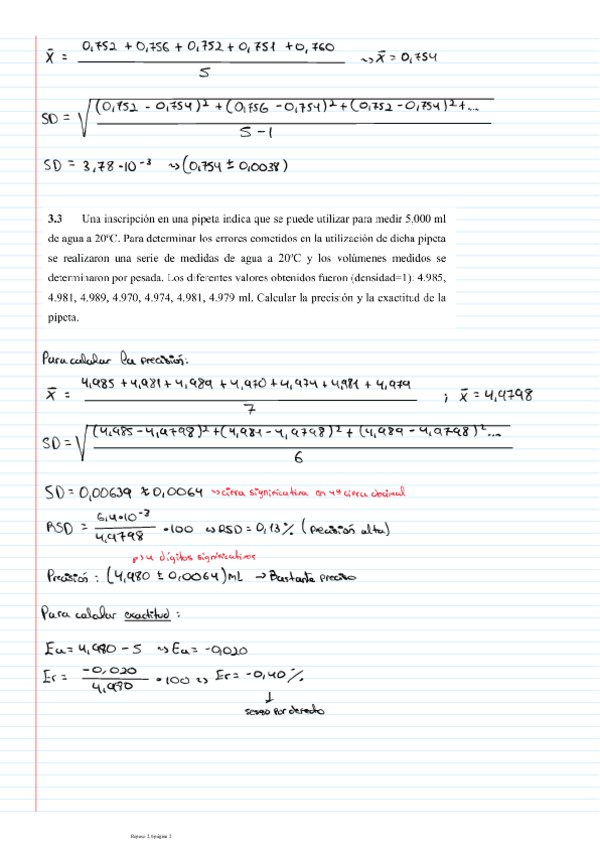 x̄ = (0,752 + 0,756 + 0,752 + 0,751 + 0,760) / 5 → x̄ = 0,754
SD = √((0,752 - 0,754)² + (0,756 - 0,754)² + (0,752 - 0,754)² + ... / 5-1)
SD = 3,78·10⁻³ → (0,754 ± 0,0038)
3.3 Una inscripción en una pipeta indica que se puede utilizar para medir 5,000 ml
de agua a 20ºC. Para determinar los errores cometidos en la utilización de dicha pipeta
se realizaron una serie de medidas de agua a 20ºC y los volúmenes medidos se
determinaron por pesada. Los diferentes valores obtenidos fueron (densidad=1): 4.985,
4.981, 4.989, 4.970, 4.974, 4.981, 4.979 ml. Calcular la precisión y la exactitud de la
pipeta.
Para calcular la precisión:
x̄ = (4,985 + 4,981 + 4,989 + 4,970 + 4,974 + 4,981 + 4,979) / 7 ; x̄ = 4,9798
SD = √((4,985 - 4,9798)² + (4,981 - 4,9798)² + (4,989 - 4,9798)² ... / 6)
SD = 0,00639 ≈ 0,0064 → cifra significativa en 4ª cifra decimal
RSD = (6,4·10⁻³ / 4,9798) · 100 → RSD = 0,13% (Precisión alta)
4 dígitos significativos
Precisión: (4,980 ± 0,0064) mL → Bastante preciso
Para calcular exactitud:
Ea = 4,980 - 5 → Ea = -0,020
Er = (-0,020 / 4,980) · 100 → Er = -0,40%
↓
sesgo por defecto